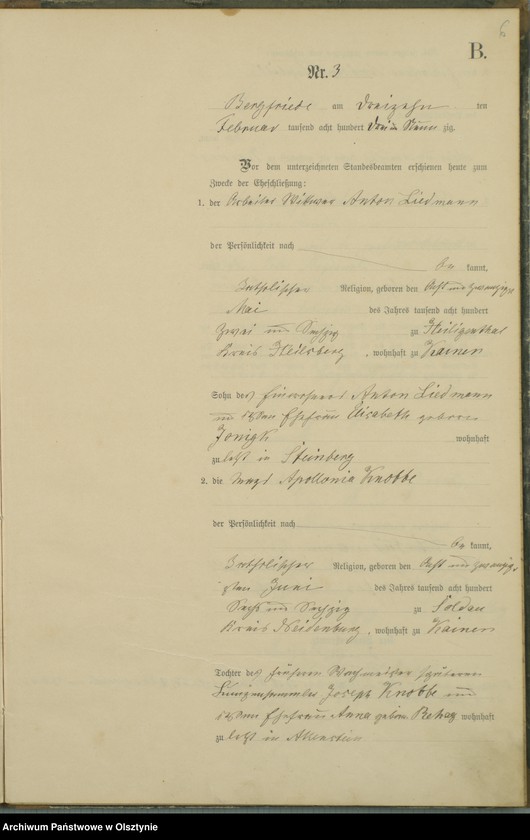 6
B.
Nr. 3
Bergfriede am dreizehn ten
Februar tausend acht hundert drei und Neun zig.
Vor dem unterzeichneten Standesbeamten erschienen heute zum
Zwecke der Eheschließung:
1. der Arbeiter Wittwer Anton Liedmann
der Persönlichkeit nach
be kannt,
katholischer Religion, geboren den acht und zwanzigst
Mai des Jahres tausend acht hundert
zwei und sechzig zu Heiligenthal
Kreis Heilsberg, wohnhaft zu Kainen
Sohn des Einwohners Anton Liedmann
und dessen Ehefrau Elisabeth geborene
Jonigk wohnhaft
zuletzt in Steinberg
2. die Magd Apollonia Knobbe
der Persönlichkeit nach
be kannt,
katholischer Religion, geboren den acht und zwanzig
sten Juni des Jahres tausend acht hundert
sechs und sechzig zu Soldau
Kreis Neidenburg, wohnhaft zu Kainen
Tochter des früheren Wachtmeister späteren
Joseph Knobbe und
dessen Ehefrau Anna geborn wohnhaft
zuletzt in Allenstein
Archiwum Państwowe w Olsztynie